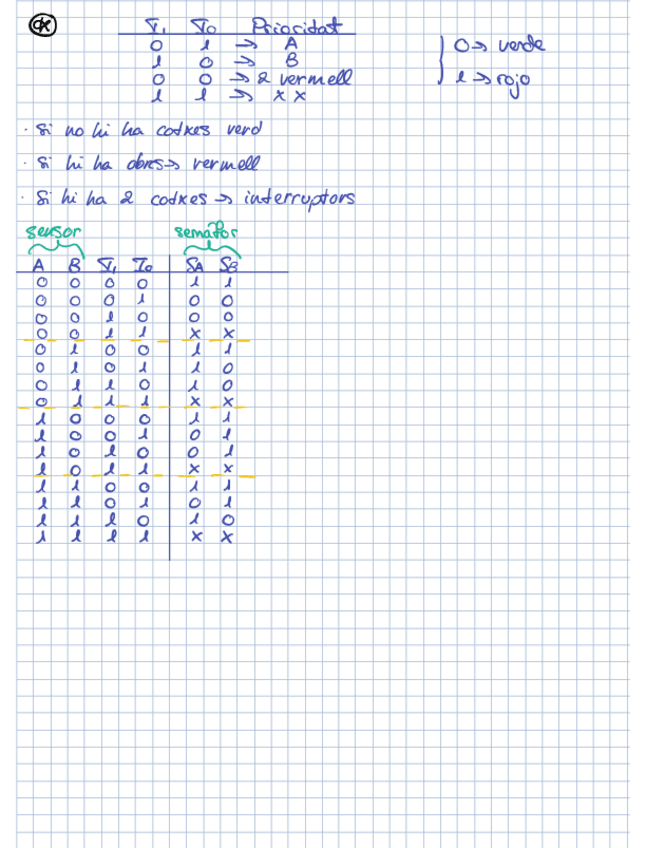 I₁ I₀ Prioridat
0 1 → A
1 0 → B
0 0 → 2 vermell
1 1 → x x
0 → verde
1 → rojo
· Si no hi ha cotxes verd
· Si hi ha obres → vermell
· Si hi ha 2 cotxes → interruptors
sensor semàfor
A B I₁ I₀ SA SB
0 0 0 0 1 1
0 0 0 1 0 0
0 0 1 0 0 0
0 0 1 1 x x
0 1 0 0 1 1
0 1 0 1 1 0
0 1 1 0 1 0
0 1 1 1 x x
1 0 0 0 1 1
1 0 0 1 0 1
1 0 1 0 0 1
1 0 1 1 x x
1 1 0 0 1 1
1 1 0 1 0 1
1 1 1 0 1 0
1 1 1 1 x x